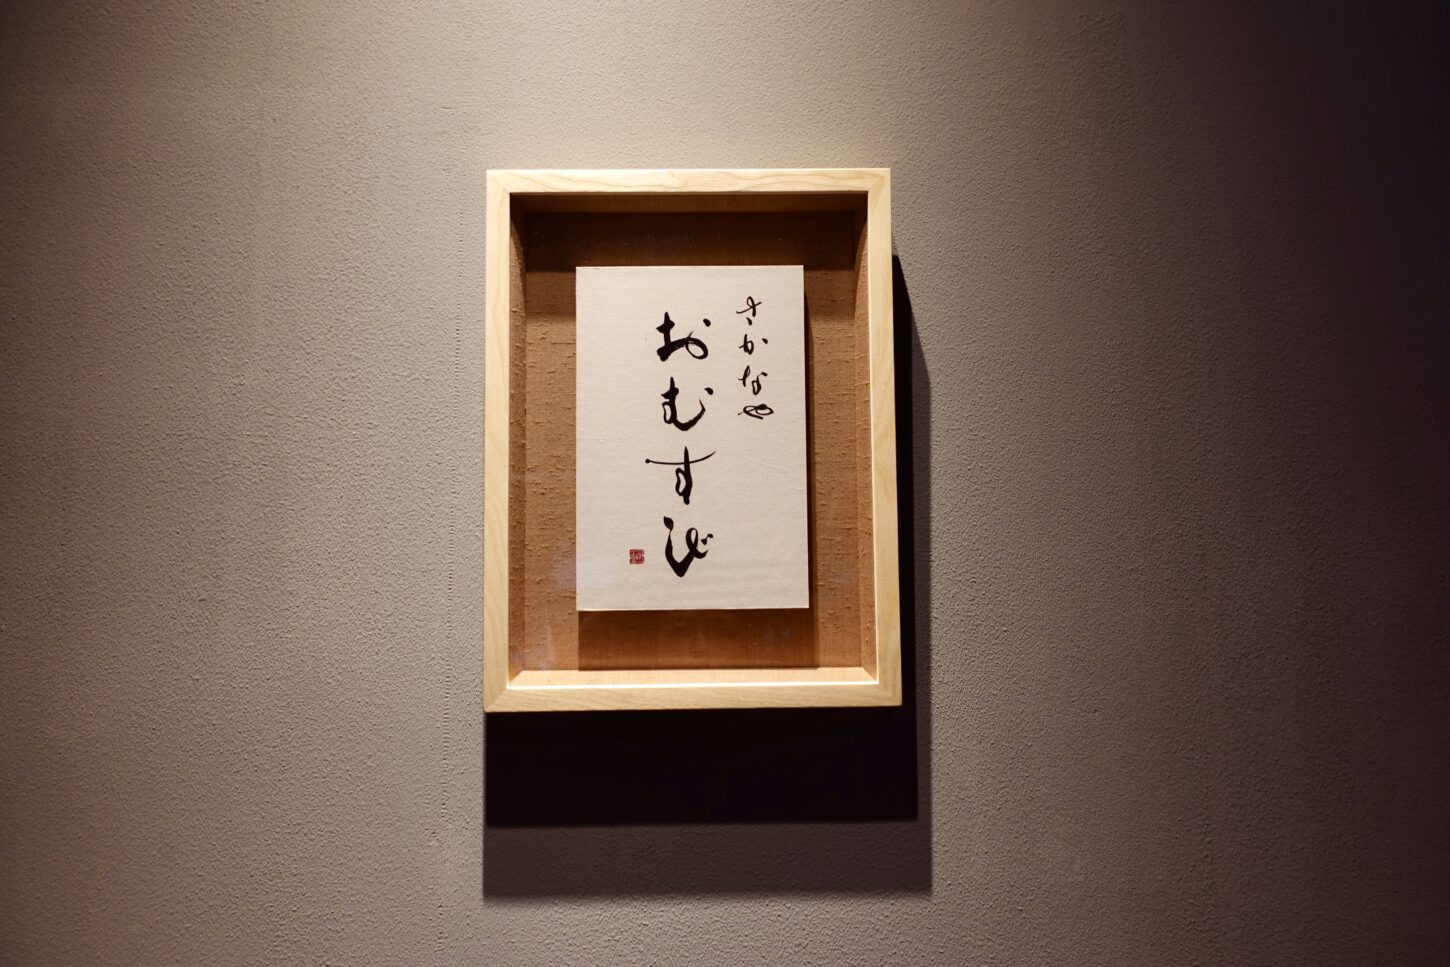 さかなや
おむすび